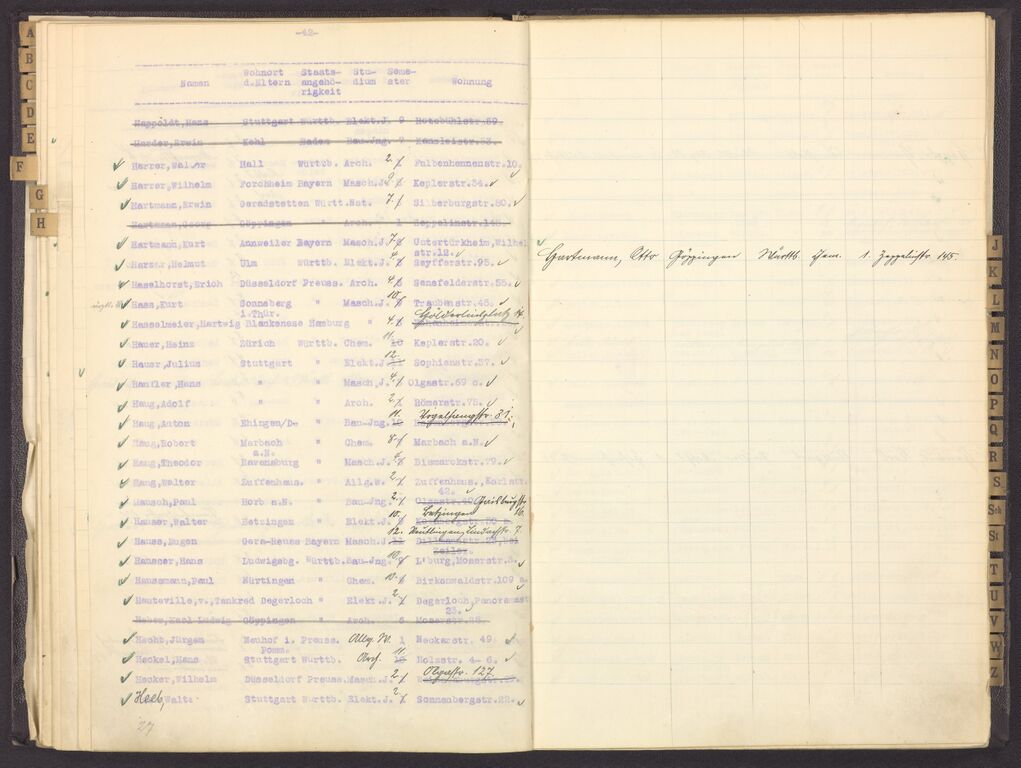 -42-
Namen Wohnort d.Eltern Staats-angehö-rigkeit Stu-dium Seme-ster Wohnung
Happoldt,Hans Stuttgart Württb. Elekt.J. 9 Rotebühlstr.59.
Harder,Erwin Kehl Baden Bau-Jng. 9 Kanzleistr.33.
Harrer,Walter Hall Württb. Arch. 2. Falbenhennenstr.10,
Harrer,Wilhelm Forchheim Bayern Masch.J. Keplerstr.34.
Hartmann,Erwin Geradstetten Württ.Nat. 7. Silberburgstr.80.
Hartmann,Georg Göppingen " Arch. 1 Zeppelinstr.145.
Hartmann,Kurt Annweiler Bayern Masch.J. 7. Untertürkheim,Wilhelm
str.12.
Ulm Württb. Elekt.J. Seyfferstr.95.
Haselhorst,Erich Düsseldorf Preuss. Arch. 4. Senefelderstr.55.
Hass,Kurt Sonneberg " Masch.J. 10. Traubenstr.45.
i.Thür. Hölderlinplatz
Hasselmeier,Hartwig Blankenese Hamburg " 4.
Hauer,Heinz Zürich Württb. Chem. 11. 10 Keplerstr.20.
Hauer,Julius Stuttgart " Elekt.J. 12. 11 Sophienstr.37.
Haufler,Hans " " Masch.J. 4. Olgastr.69 c.
Haug,Adolf " " Arch. 2. Römerstr.75.
Haug,Anton Ehingen/Do " Bau-Jng. 11. Vogelsangstr. 81.
Haug,Robert Marbach " Chem. 8. Marbach a.N.
a.N.
Haug,Theodor Ravensburg " Masch.J. Bismarckstr.79.
Haug,Walter Zuffenhaus. " Allg.W. 2. Zuffenhaus., Karlstr.
42.
Hausch,Paul Horb a.N. " Bau-Jng. 2. Olgastr.40 Gaisburgstr. 16.
Hauser,Walter Betzingen " Elekt.J. 10. Betzingen
Hauss,Eugen Gera-Reuss Bayern Masch.J. 12. 11 Reutlingen, Lindachstr. 7.
Zeiler.
Hausser,Hans Ludwigsbg. Württb. Bau-Jng. 10. L'burg,Moserstr.3.
Haussmann,Paul Nürtingen " Chem. 10. Birkenwaldstr.109 a.
Hauteville,v.,Tankred Degerloch " Elekt.J. 2. Degerloch,Panoramast
23.
Heben,Karl Ludwig Göppingen " Arch. 6 Moserstr.26.
Hecht,Jürgen Neuhof i. Preuss. Allg. W. 1 Neckarstr. 49.
Pomm.
Heckel,Hans Stuttgart Württb. Arch. 11. 10 Holzstr. 4-6.
Hecker,Wilhelm Düsseldorf Preuss.Masch.J. 2. Olgastr. 127.
Heeb,Walte Stuttgart Württb. Elekt.J. 2. Sonnenbergstr.22.
27
Hartmann, Otto Göppingen Württb. Chem. 1. Zeppelinstr. 145.
A
B
C
D
E
F
G
H
J
K
L
M
N
O
P
Q
R
S
Sch
St
T
U
V
W
Z